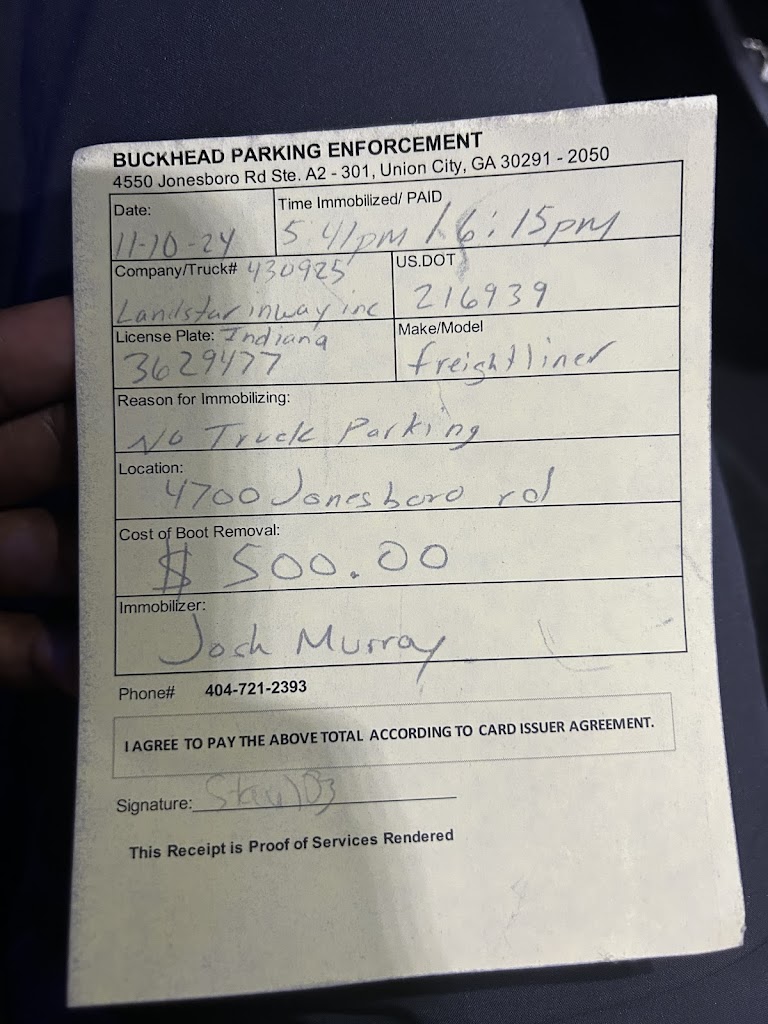 BUCKHEAD PARKING ENFORCEMENT
4550 Jonesboro Rd Ste. A2 - 301, Union City, GA 30291 - 2050
Date:
11-10-24
Time Immobilized/ PAID
5:41pm / 6:15pm
Company/Truck# 430925
Landstar inway inc
US.DOT
216939
License Plate: Indiana
3629477
Make/Model
freightliner
Reason for Immobilizing:
No Truck Parking
Location:
4700 Jonesboro rd
Cost of Boot Removal:
$ 500.00
Immobilizer:
Josh Murray
Phone# 404-721-2393
I AGREE TO PAY THE ABOVE TOTAL ACCORDING TO CARD ISSUER AGREEMENT.
Signature:
This Receipt is Proof of Services Rendered